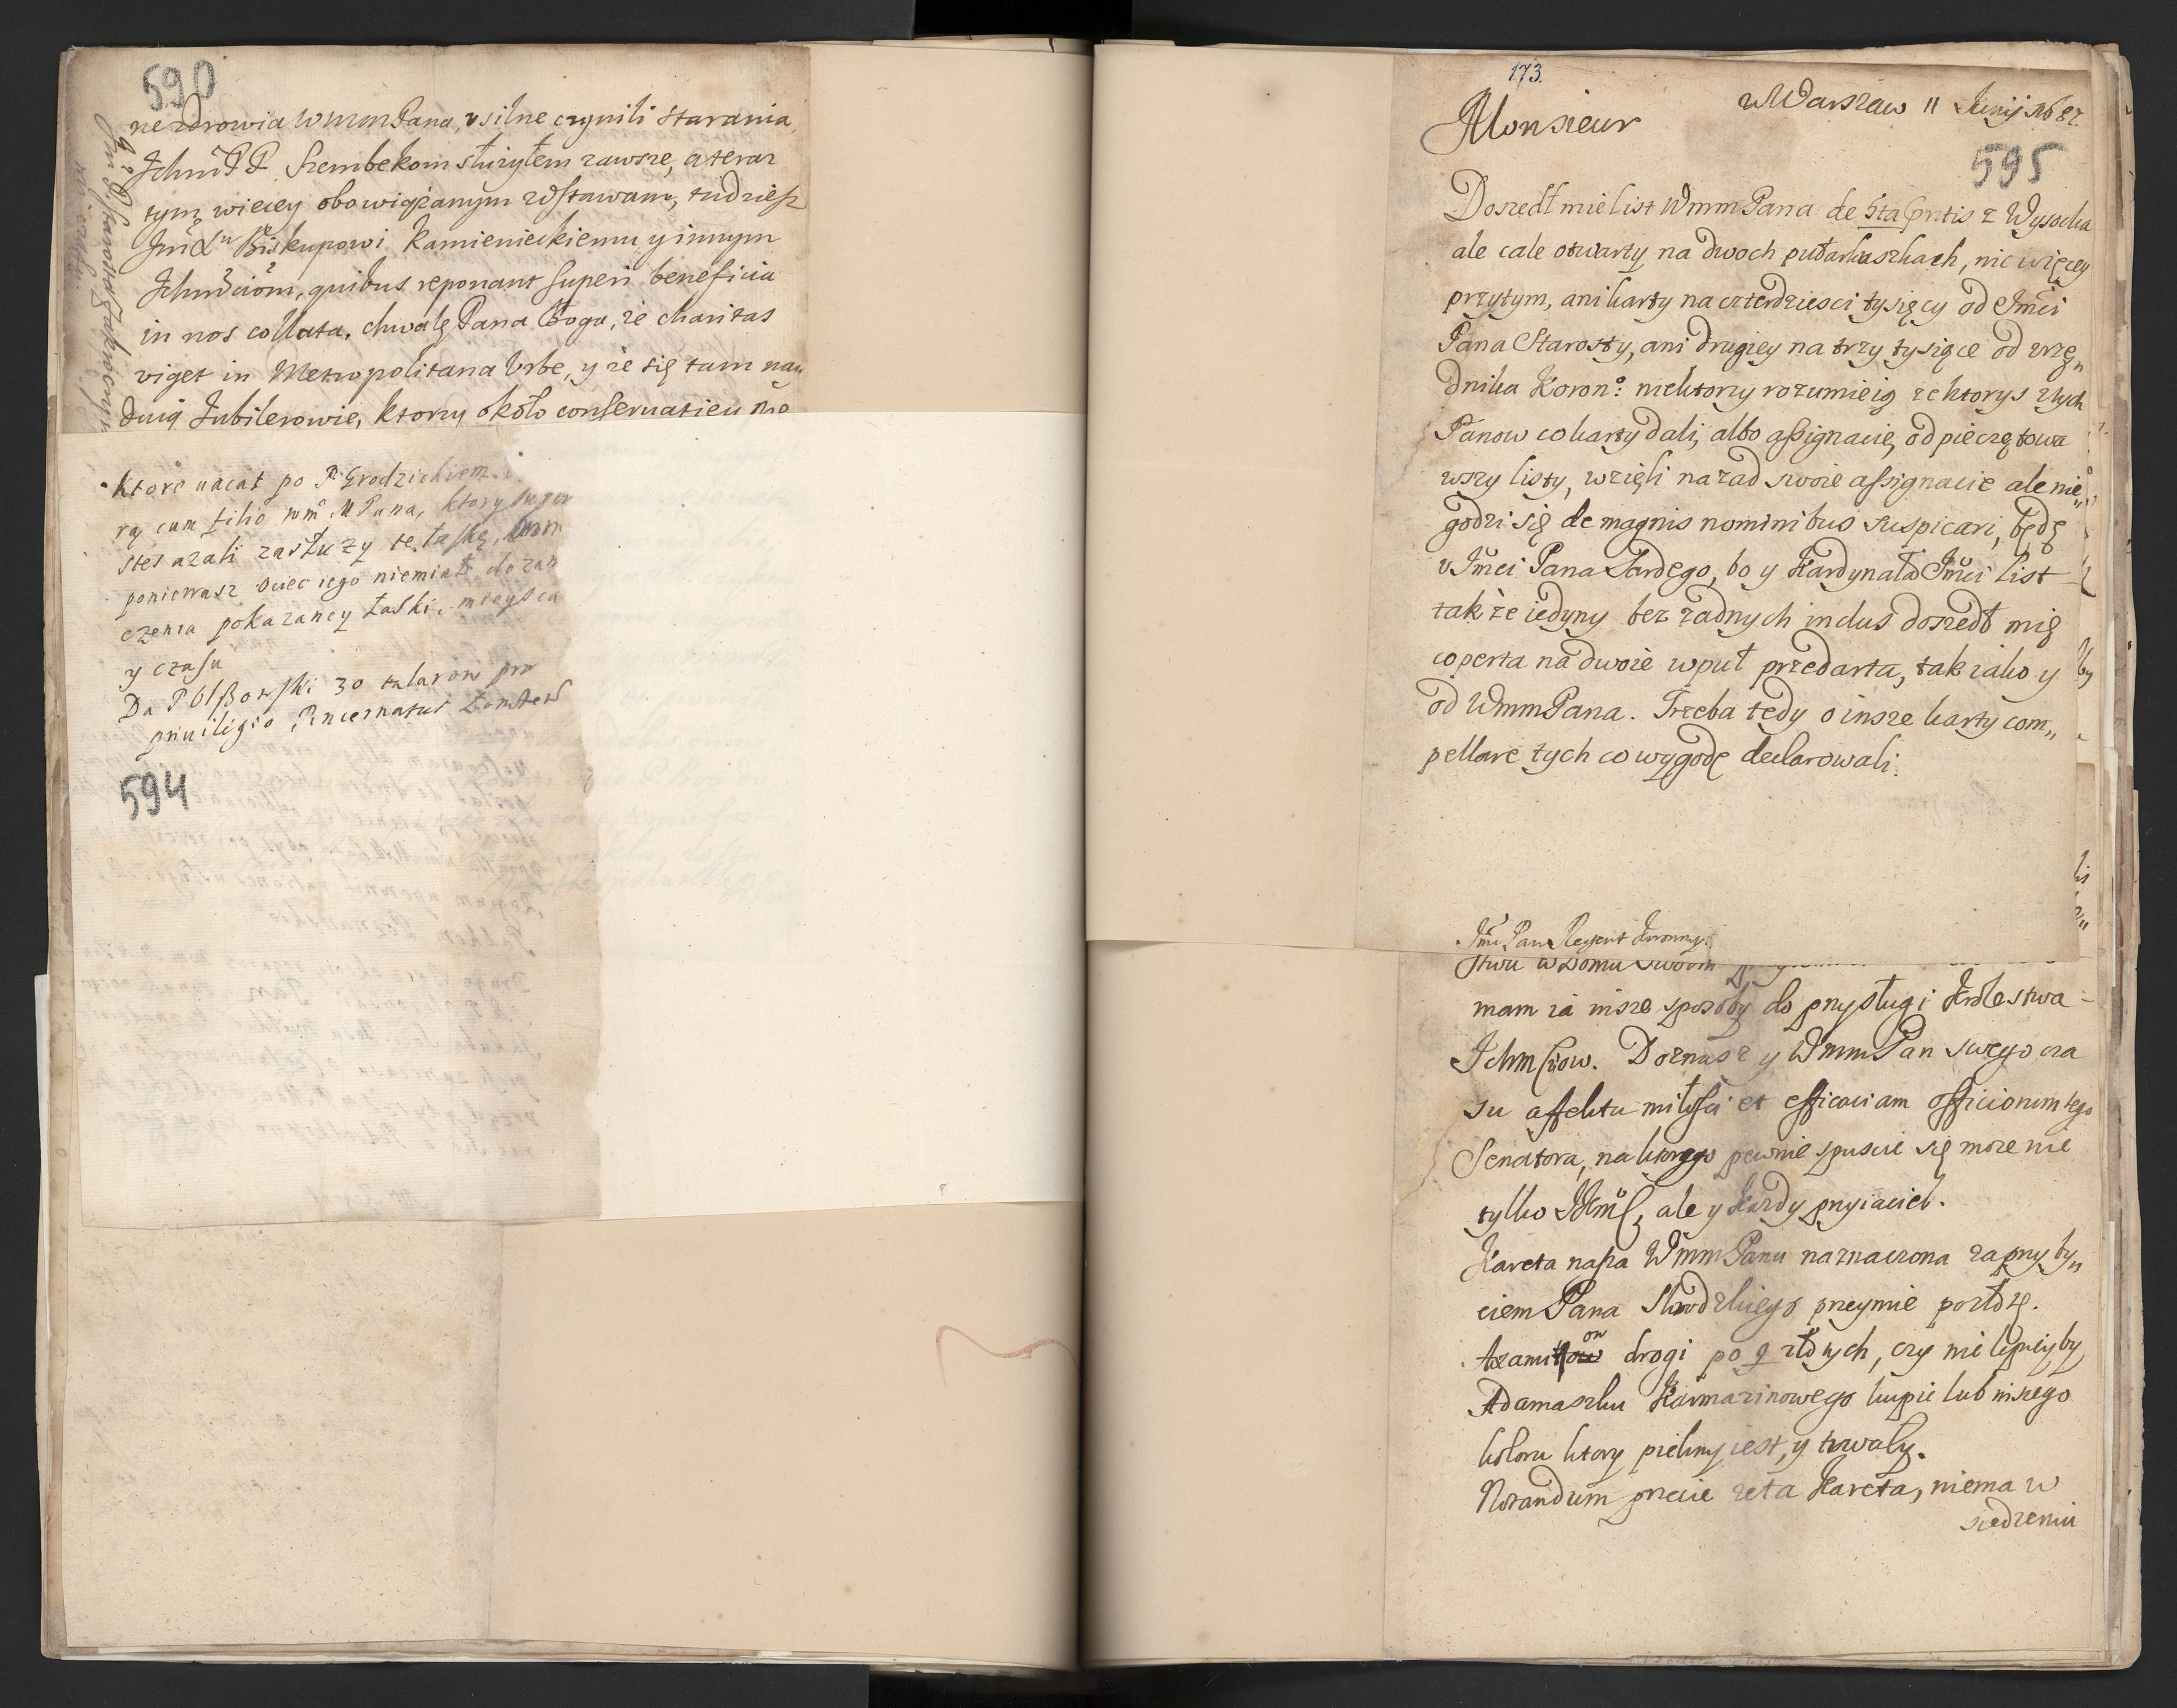 590
ne zdrowia WmmPana, vsilne czynili starania,
Ichm PP. Szembekom służyłem zawsze, a teraz
tym więcey obowiązanym zostawam, tudziesz
Biskupowi Kamienieckiemu y innym
quibus reponant superi beneficia
in nos collata, chwalę Pana Boga, że charitas
viget in Metropolitana Vrbe, y że się tam nay
duią Jubilerowie, ktorzy około conseruatiey
po P. Grodzickiem
cum filio MPana, ktory
zasłuzy te łaskę,
poniewasz ociec iego niemiał do
czenia pokazaney łaski mieysca
y czasu
Da P 30 talarow
priuilegio
594
173.
w Warszaw 11 Junij 1687.
Monsieur
595
Doszedł mie list WmmPana de 5ta z Wysocka
ale cale otwarty na dwoch pułarkuszkach, nic więcey
przytym, ani karty na czterdziesci tysięcy od Imci
Pana Starosty, ani drugiey na trzy tysiące od vrzę„
dnika Koron: niektorzy rozumieią ze ktorys z tych
Panow co karty dali, albo assignacie, odpieczętowa
wszy listy, wzięli nazad swoie assignacie ale nie„
godzi się de magnis nominibus suspicari, będę
v Imci Pana Sardego, bo y Kardynała Imci list
takze iedyny bez zadnych inclus doszedł mię
coperta na dwoie wpuł przedarta, tak iako y
od WmmPana. Trzeba tedy o insze karty com„
pellare tych co wygodę declarowali.
Imć Pan Regent Koronny.
stwu w Domu swoim
mam ia insze sposoby do przysługi Krolestwa
Ichmsciow. Doznasz y WmmPan swego cza
su affektu miłosci et efficaciam officiorum tego
Senatora, na ktorego pewnie spuscic się moze nie
tylko ale y kazdy przyiaciel.
Kareta nasza WmmPanu naznaczona za przyby„
ciem Pana przeymie
drogi po 9 złotych, czy nie lepieyby
Adamaszku Karmazinowego kupic lub inszego
koloru ktory piekny iest, y trwały.
Notandum przecie ze ta Kareta, niema w
siedzeniu